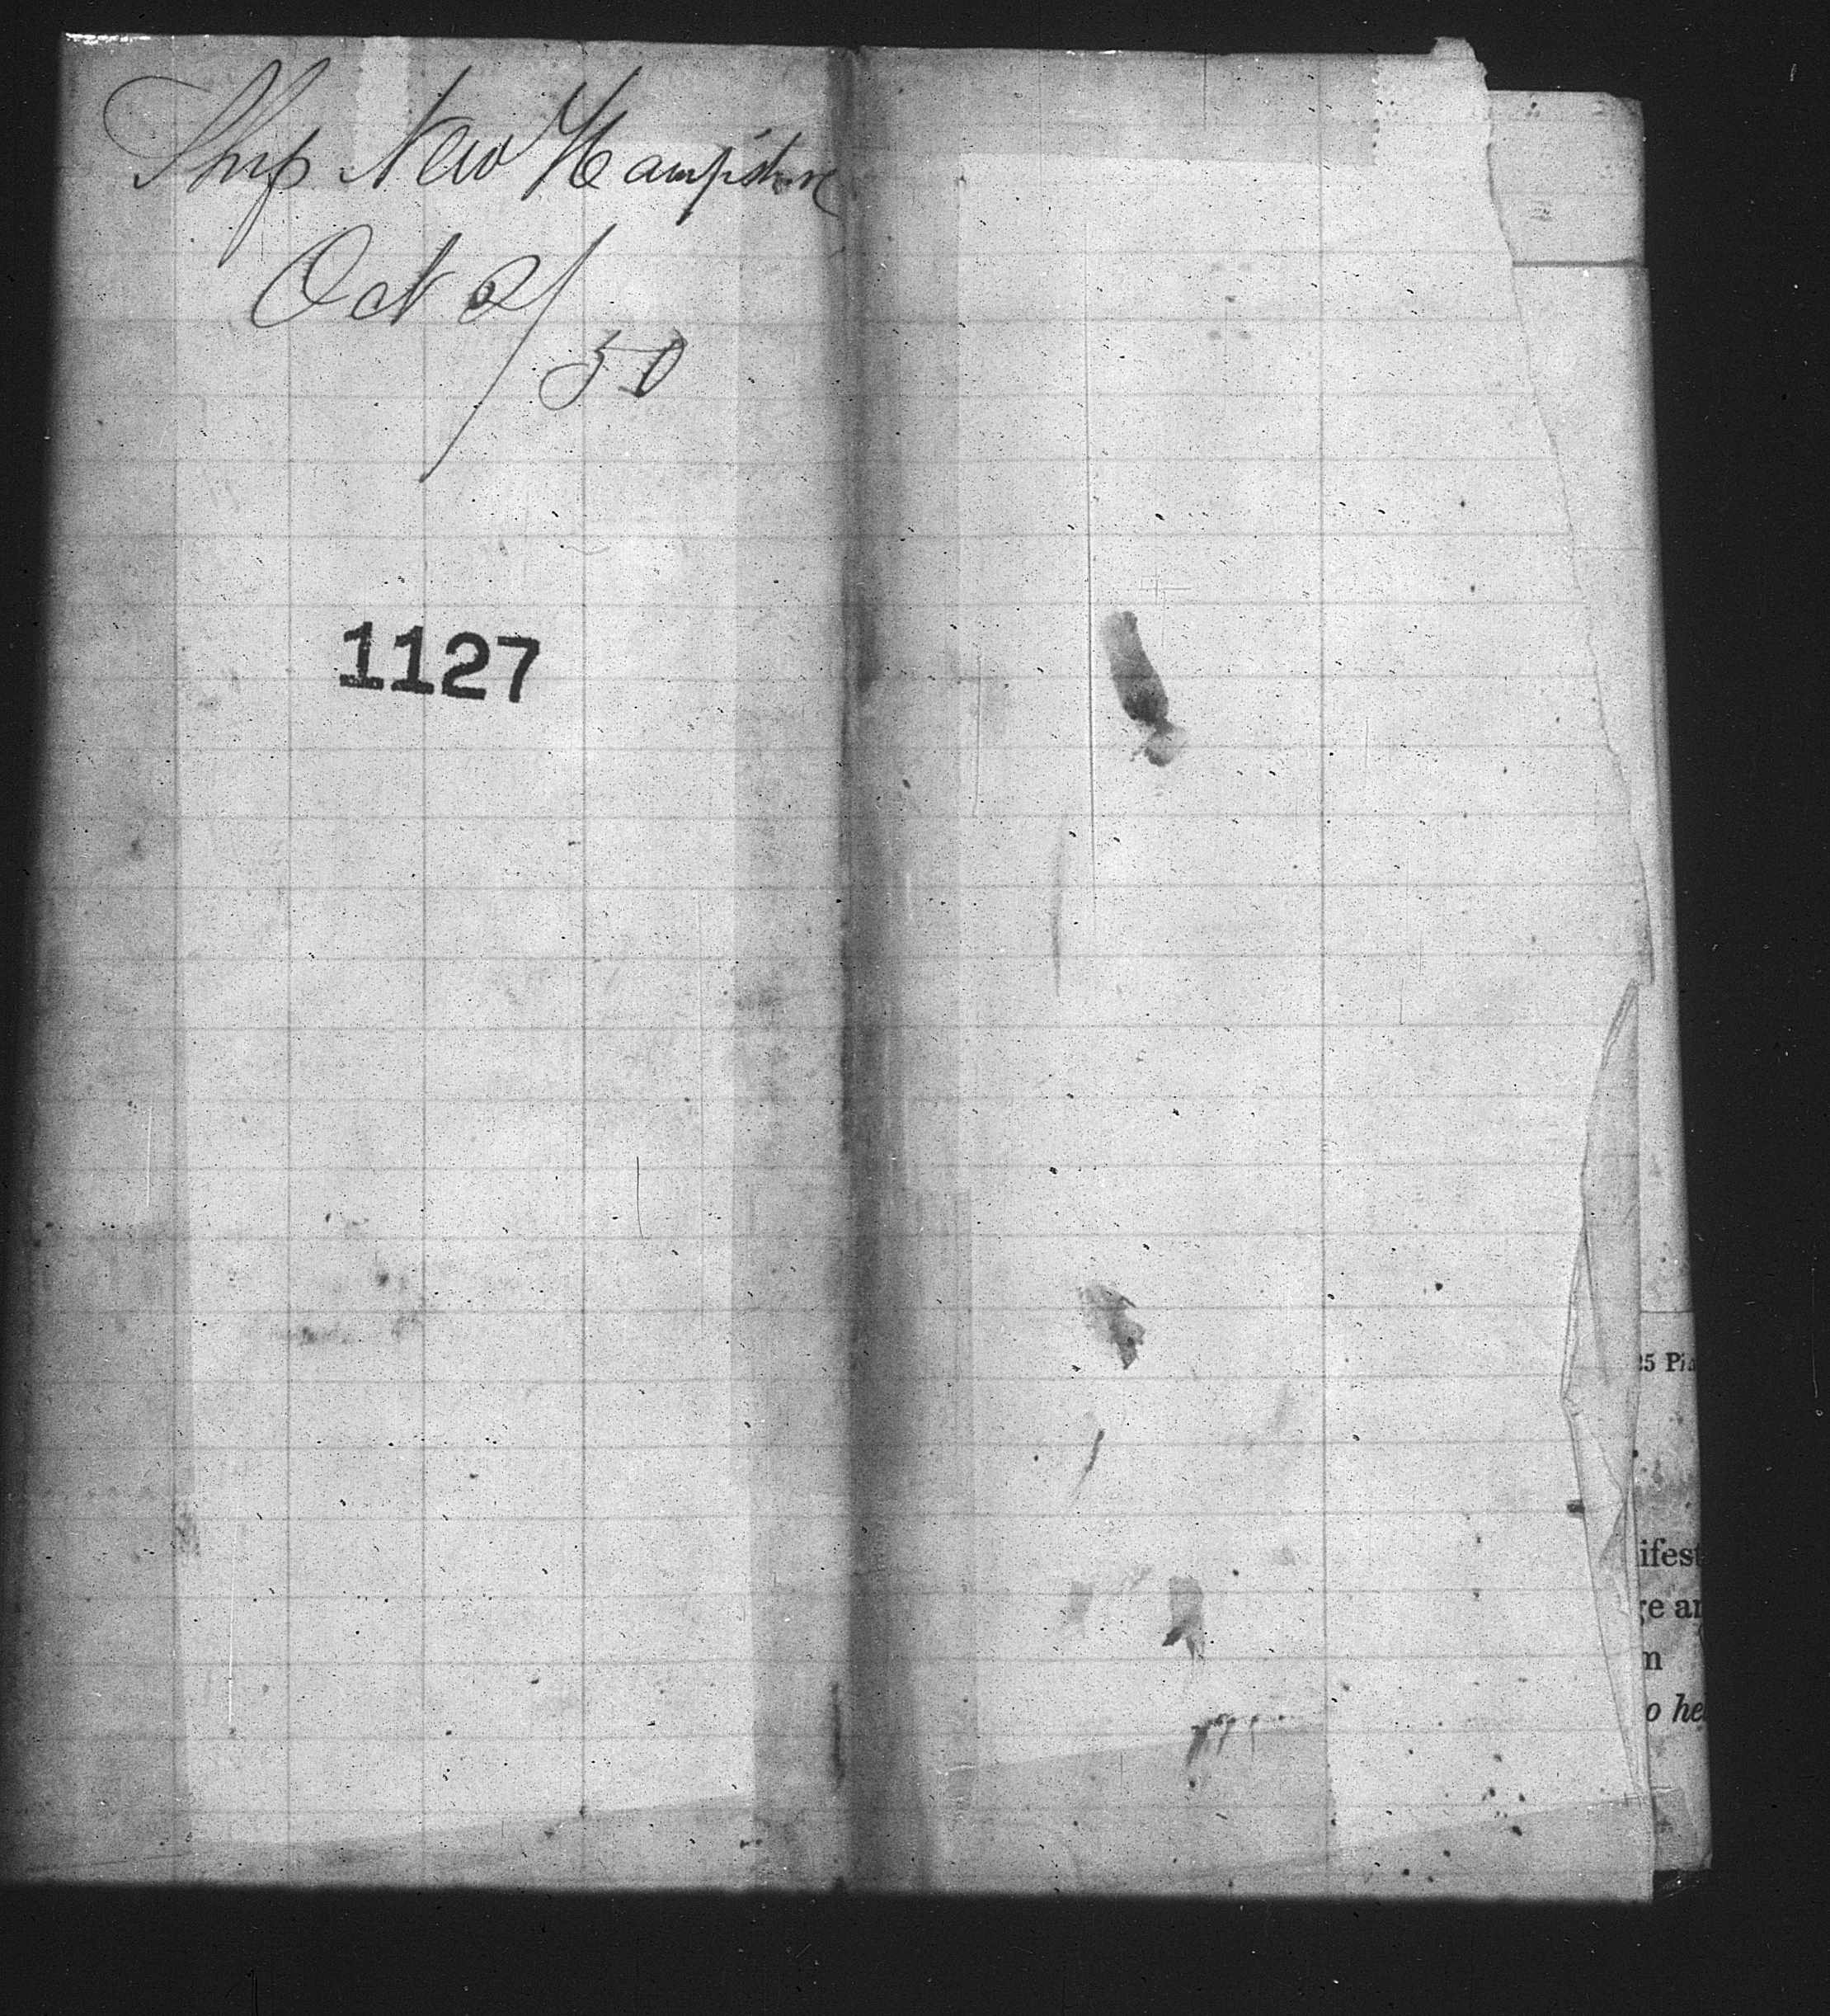 Ship New Hampshire
Oct 2/
50
1127
25 Pi
ifest
ge an
m
o he